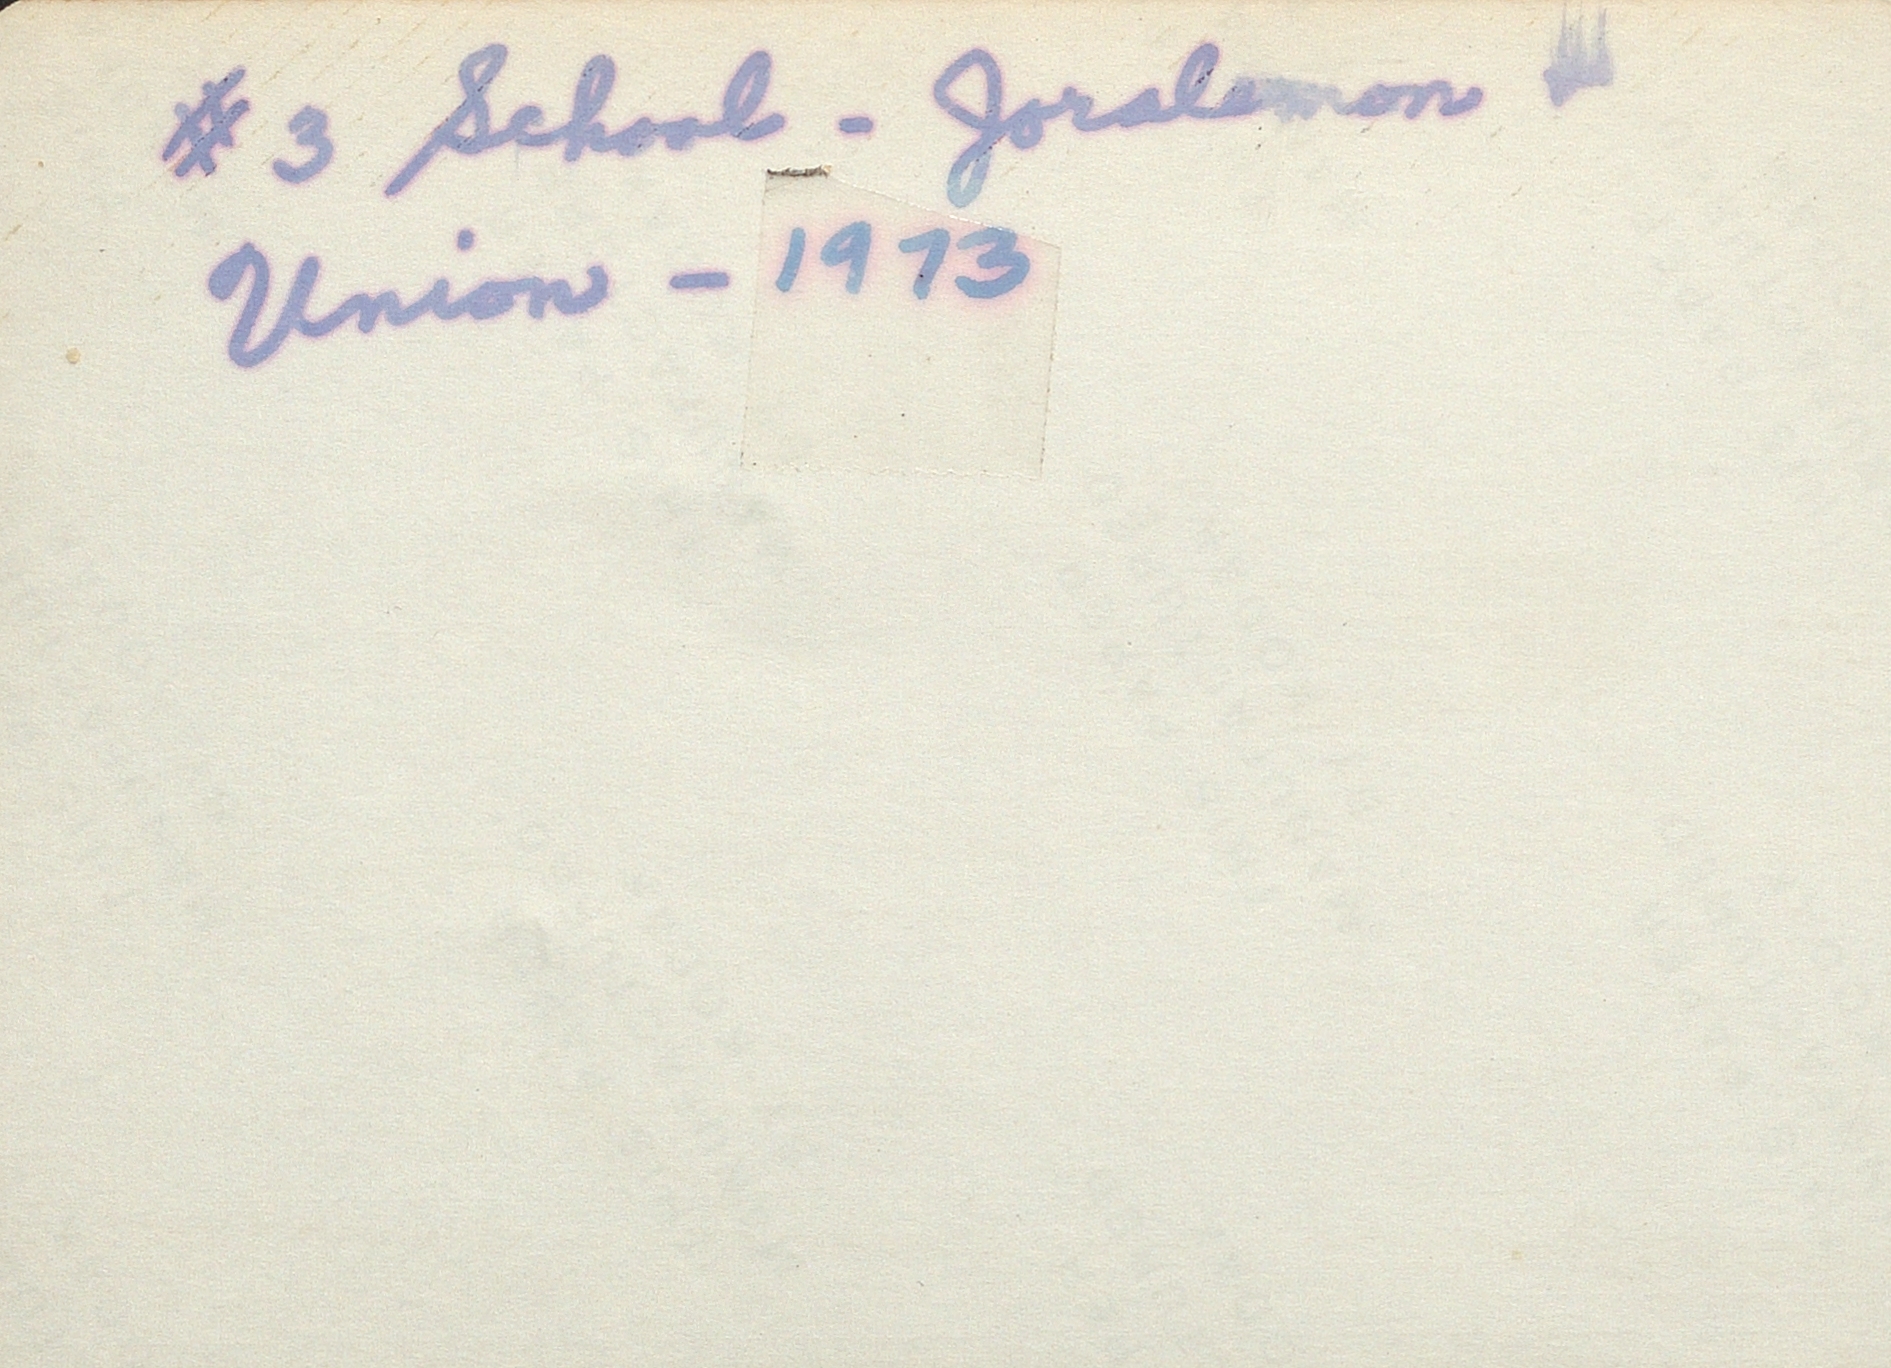 # 3 School - Joralemon
Union - 1973